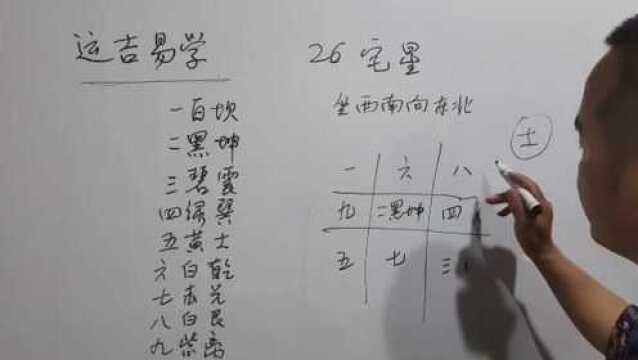 运吉易学
一白坎
二黑坤
三碧震
四绿巽
五黄土
六白乾
七赤兑
八白艮
九紫离
26宅星
坐西南向东北
土
一 六 八
九 二黑坤 四
五 七 三